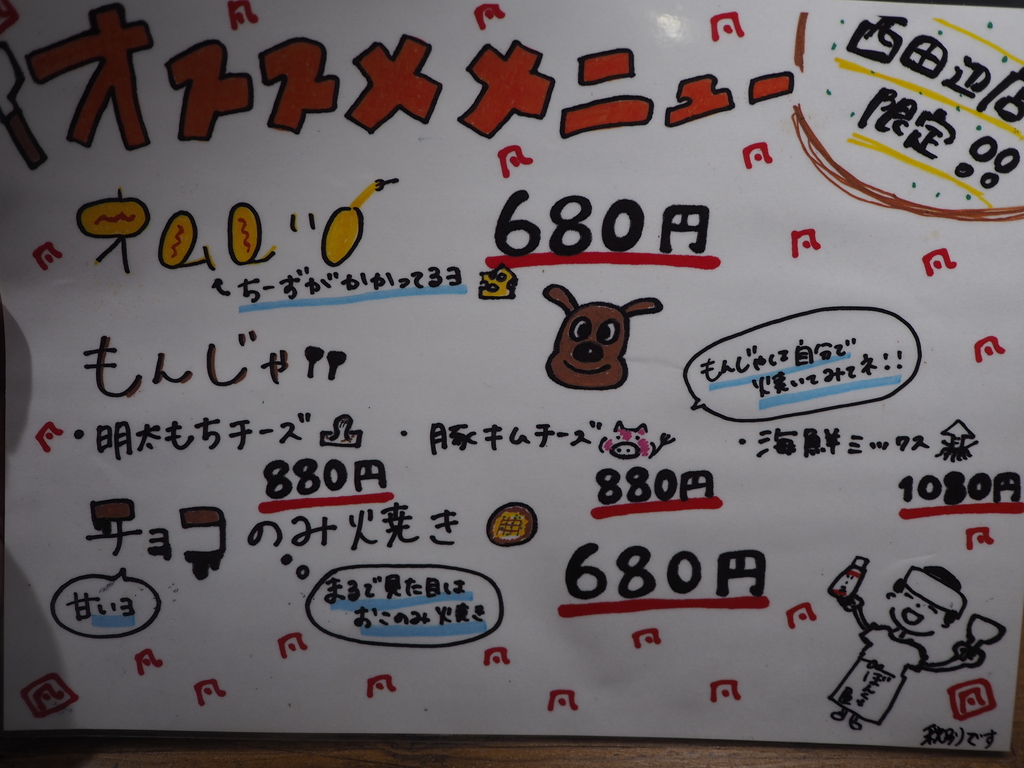 オススメメニュー
西田辺店
限定!!
680円
ちーずがかかってるヨ
もんじゃ!!
もんじゃして自分で
火焼いてみてネ!!
・明太もちチーズ
・豚キムチーズ
・海鮮ミックス
880円
880円
1080円
チョコのみ火焼き
680円
甘いヨ
まるで見た目は
おこのみ火焼き
税別りです